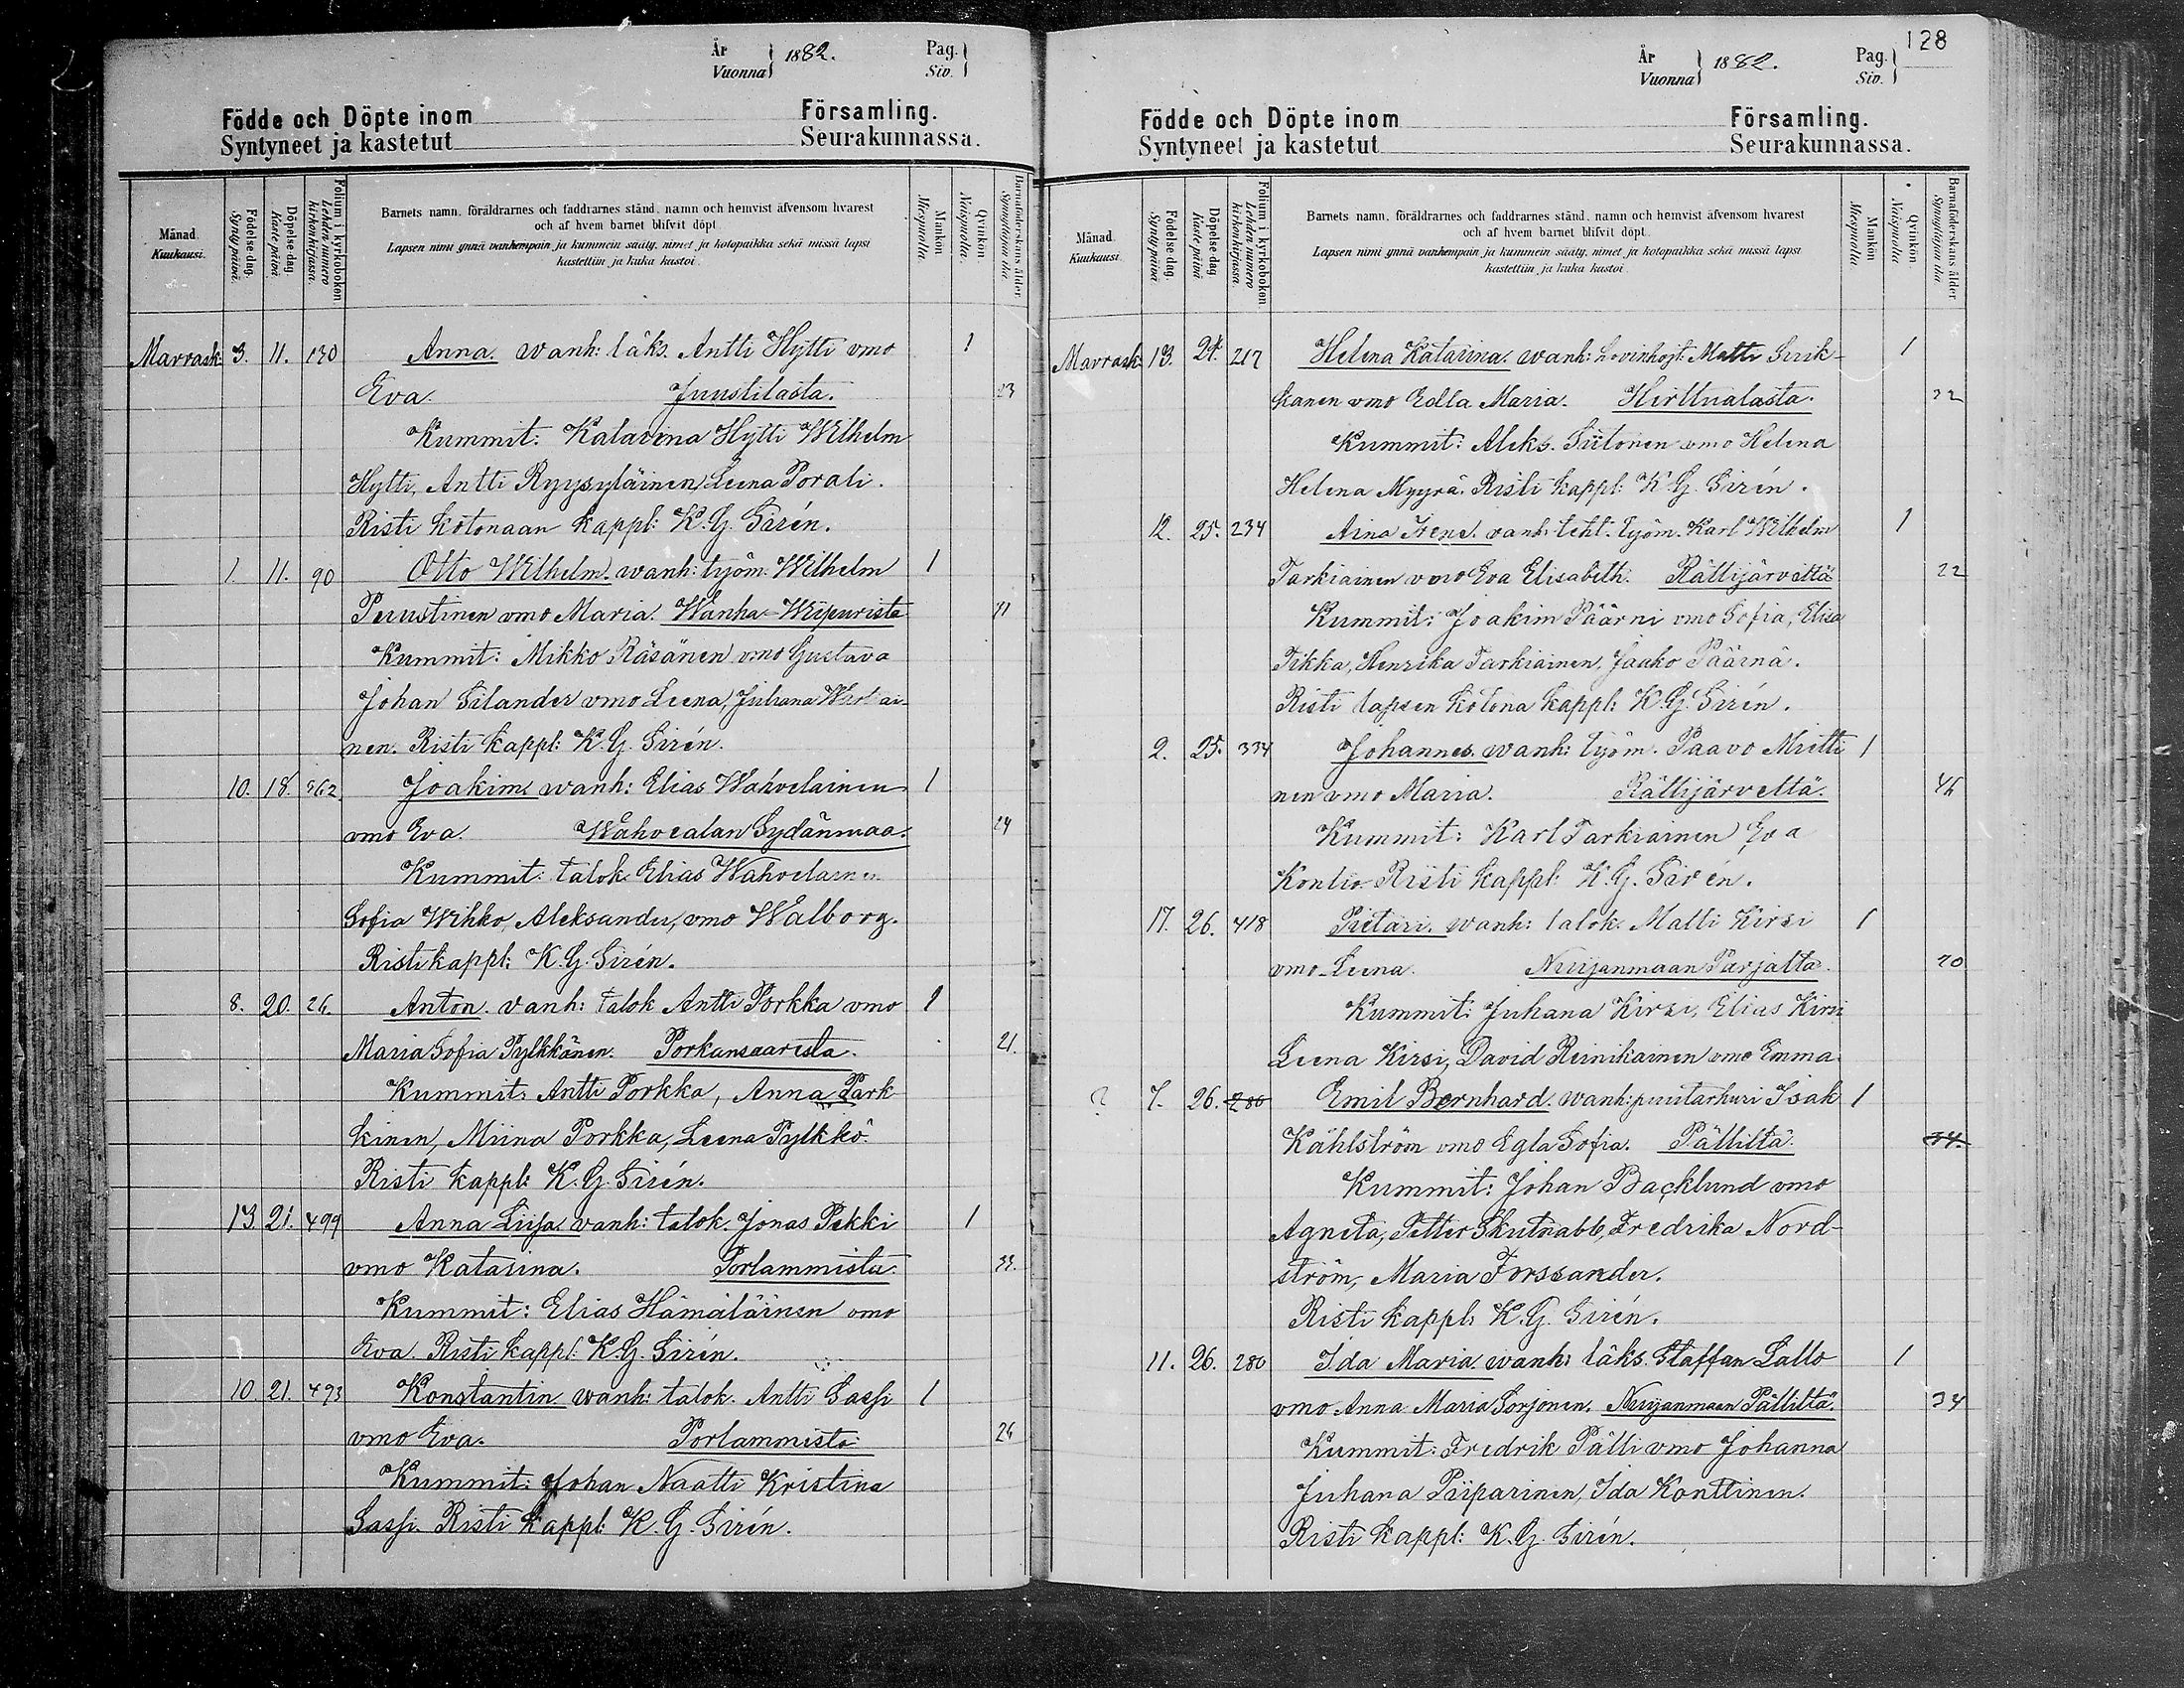 År
Vuonna } 1882.
Pag.
Siv. }
Födde och Döpte inom Församling.
Syntyneet ja kastetut Seurakunnassa.
Månad
Kuukausi.
Födelse-dag.
Synty päivä.
Döpelse-dag
Kaste päivä.
Folium i kyrkoboken
Lehden numero
kirkonkirjassa.
Barnets namn, föräldrarnes och faddrarnes stånd, namn och hemvist äfvensom hvarest
och af hvem barnet blifvit döpt.
Lapsen nimi ynnä vanhempain ja kummein sääty, nimet ja kotopaikka sekä missä lapsi
kastettiin ja kuka kastoi.
Mankön
Miespuolta.
Qvinkön.
Naispuolta.
Barnaföderskans ålder.
Synnyttäjän ikä
Marrask. 3. 11. 130 Anna. wanh: läks. Antti Hytti vmo 1
Eva. Juustilasta. 23
Kummit: Katarina Hytti Wilhelm
Hytti, Antti Ryysyläinen, Leena Porali.
Risti kotonaan kappl: K. G. Sirén.
1. 11. 90 Otto Wilhelm. wanh: työm. Wilhelm 1
Puustinen vmo Maria. Wanha-Wiipurista
Kummit: Mikko Räsänen vmo Gustava
Johan Silander vmo Leena, Juhana
nen. Risti kappl: K. G. Sirén.
10. 18. Joakim. wanh: Elias Wahvelainen 1
vmo Eva. Wahvealan Sydänmaa. 24
Kummit: talok. Elias Wahvelainen
Sofia Wihko, Aleksander, vmo Walborg.
Risti kappl: K. G. Sirén.
8. 20. 26. Anton. vanh: talok Antti Porkka vmo 1
Maria Sofia Pylkkänen. Porkansaaresta. 21.
Kummit: Antti Porkka, Anna Park
kinen, Miina Porkka, Leena Pylkkö.
Risti kappl: K. G. Sirén.
13 21. 499 Anna Liisa wanh: talok. Jonas Pekki 1
vmo Katarina. Porlammista. 33.
Kummit: Elias Hämäläinen vmo
Eva. Risti kappl: K. G. Sirén.
10. 21. 493 Konstantin wanh: talok. Antti Sassi 1
vmo Eva. Porlammista 26
Kummit: Johan Naatti Kristina
Sassi. Risti kappl: K. G. Sirén.
128
År
Vuonna } 1882.
Pag.
Siv. }
Födde och Döpte inom Församling.
Syntyneet ja kastetut Seurakunnassa.
Månad
Kuukausi.
Födelse-dag.
Synty päivä.
Döpelse-dag
Kaste päivä
Folium i kyrkoboken
Lehden numero
kirkonkirjassa.
Barnets namn, föräldrarnes och faddrarnes stånd, namn och hemvist äfvensom hvarest
och af hvem barnet blifvit döpt.
Lapsen nimi ynnä vanhempain ja kummein sääty, nimet ja kotopaikka sekä missä lapsi
kastettiin ja kuka kastoi
Mankön
Miespuolta
Qvinkön.
Naispuolta
Barnaföderskans ålder
Synnyttäjän ikä
Marrask. 13. 24. 217 Helena Katarina. wanh: hovinhojt: Matti Sirik- 1
kanen vmo Edla Maria. Hirttualasta.
Kummit: Aleks. Siitonen vmo Helena
Helena Myyrä. Risti kappl: K. G. Sirén.
12. 25. 234 Aina Irene. vanh: teht. työm. Karl Wilhelm 1
Tarkiainen vmo Eva Elisabeth. Rättijärveltä 22
Kummit: Joakim Päärni vmo Sofia, Elisa
Tikka, Henrika Tarkiainen, Jaako Päärnä.
Risti lapsen kotona kappl: K. G. Sirén.
2. 25. 334 Johannes. wanh: työm. Paavo Miitti 1
nen vmo Maria. Rättijärveltä. 46
Kummit: Karl Tarkiainen Eva
Kontio Risti kappl: K. G. Sirén.
17. 26. 418 Pietari. wanh: talok. Matti Kirsi 1
vmo Leena. Nuijanmaan Purjalta. 20
Kummit: Juhana Kirsi, Elias Kirsi
Leena Kirsi, David Reinikainen vmo Emma
? 7. 26. 280 Emil Bernhard. wanh: puutarhuri Isak 1
Kählström vmo Egla Sofia. Pällilta. 34.
Kummit: Johan Backlund vmo
Agneta, Petter Skutnabb, Fredrika Nord-
ström, Maria Forssander.
Risti kappl: K. G. Sirén.
11. 26. 280 Ida Maria. wanh: läks. Staffan Lallo 1
vmo Anna Maria Sorjonen. Nuijanmaan Pälliltä. 34
Kummit: Fredrik Pälli vmo Johanna
Juhana Piiparinen, Ida Konttinen.
Risti kappl: K. G. Sirén.